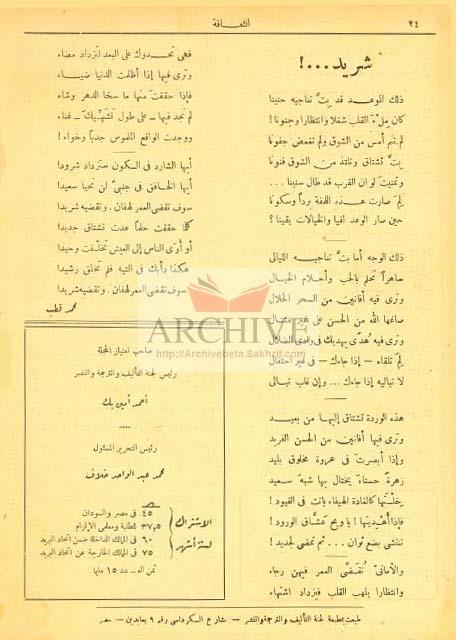 ٢٤
الثقافة
شريد ...!
ذلك الموعد قد بِتَّ تناجيه حنينا
كان مِلْءَ القلب شغلا وانتظارا وجنونا !
لم تنم أمس من الشوق ولم تغمض جفونا
بِتَّ تشتاق وتلتذ من الشوق فنونا
وتمنيت لو ان القرب قد طال سنينا ...
لِمَ صارت هذه اللهفة برداً وسكونا
حين صار الوعد لقيا والخيالات يقينا ؟
ذلك الوجه أما بتَّ تناجيه الليالى
ساهراً تحلم بالحب وأحلام الخيال
وترى فيه أفانين من السحر الحلال
صاغها الله من الحسن على غير مثال
وترى فيه هُدى يهديك فى وادى الضلال
لِمَ تلقاه — إذا جاءك — فى غير احتفال
لا تباليه إذا جاءك ... وإن غاب تبالى
هذه الوردة تشتاق إليها من بعيد
وترى فيها أفانين من الحسن الفريد
وإذا أبصرتَ فى عروة مخلوق بليد
زهرة حسناء يختال بها شبه سعيد
خِلْتَها كالغادة الهيفاء باتت فى القيود !
فإذا أُهْدِيتَها ! يا ويح عشَّاق الورود !
تنتشى بضع ثوان ... ثم تمضى لجديد !
والأمانىّ تُقَضّى العمر فيهن رجاء
وانتظارا يلهب القلب فيزداد اشتهاء
فهى تحدوك على البعد لتزداد مضاء
وترى فيها إذا أظلمت الدنيا ضياء
فإذا حققت منها ما سخا الدهر وشاء
لم تجد فيها — على طول تَشَهِّيكَ — غناء
ووجدت الواقع الملموس جدباً وخواء !
أيها الشارد فى السكون ستزداد شرودا
أيها الخافق فى جنبىَّ لن تحيا سعيدا
سوف تقضى العمر لهفان . وتقضيه شريدا
كلما حققت حلماً عدت تشتاق جديدا
أو أَوَى الناس إلى العيش تخلّفت وحيدا
هكذا دأبك فى التيه فلم تخلق رشيدا
سوف تقضى العمر لهفان . وتقضيه شريدا
محمد قطب
صاحب امتياز المجلة
رئيس لجنة التأليف والترجمة والنشر
أحمد أمين بك
رئيس التحرير المسئول
محمد عبد الواحد خلاف
الاشتراك
لستة أشهر
٤٥ فى مصر والسودان
٣٧,٥ للطلبة ومعلمى الإلزام
٦٠ فى الممالك الداخلة ضمن اتحاد البريد
٧٥ فى الممالك الخارجة عن اتحاد البريد
ثمن العدد ١٥ مليما
طبعت بمطبعة لجنة التأليف والترجمة والنشر - بشارع السكرداسى رقم ٩ بعابدين - مصر
ARCHIVE
http://Archivebeta.Sakhrit.com